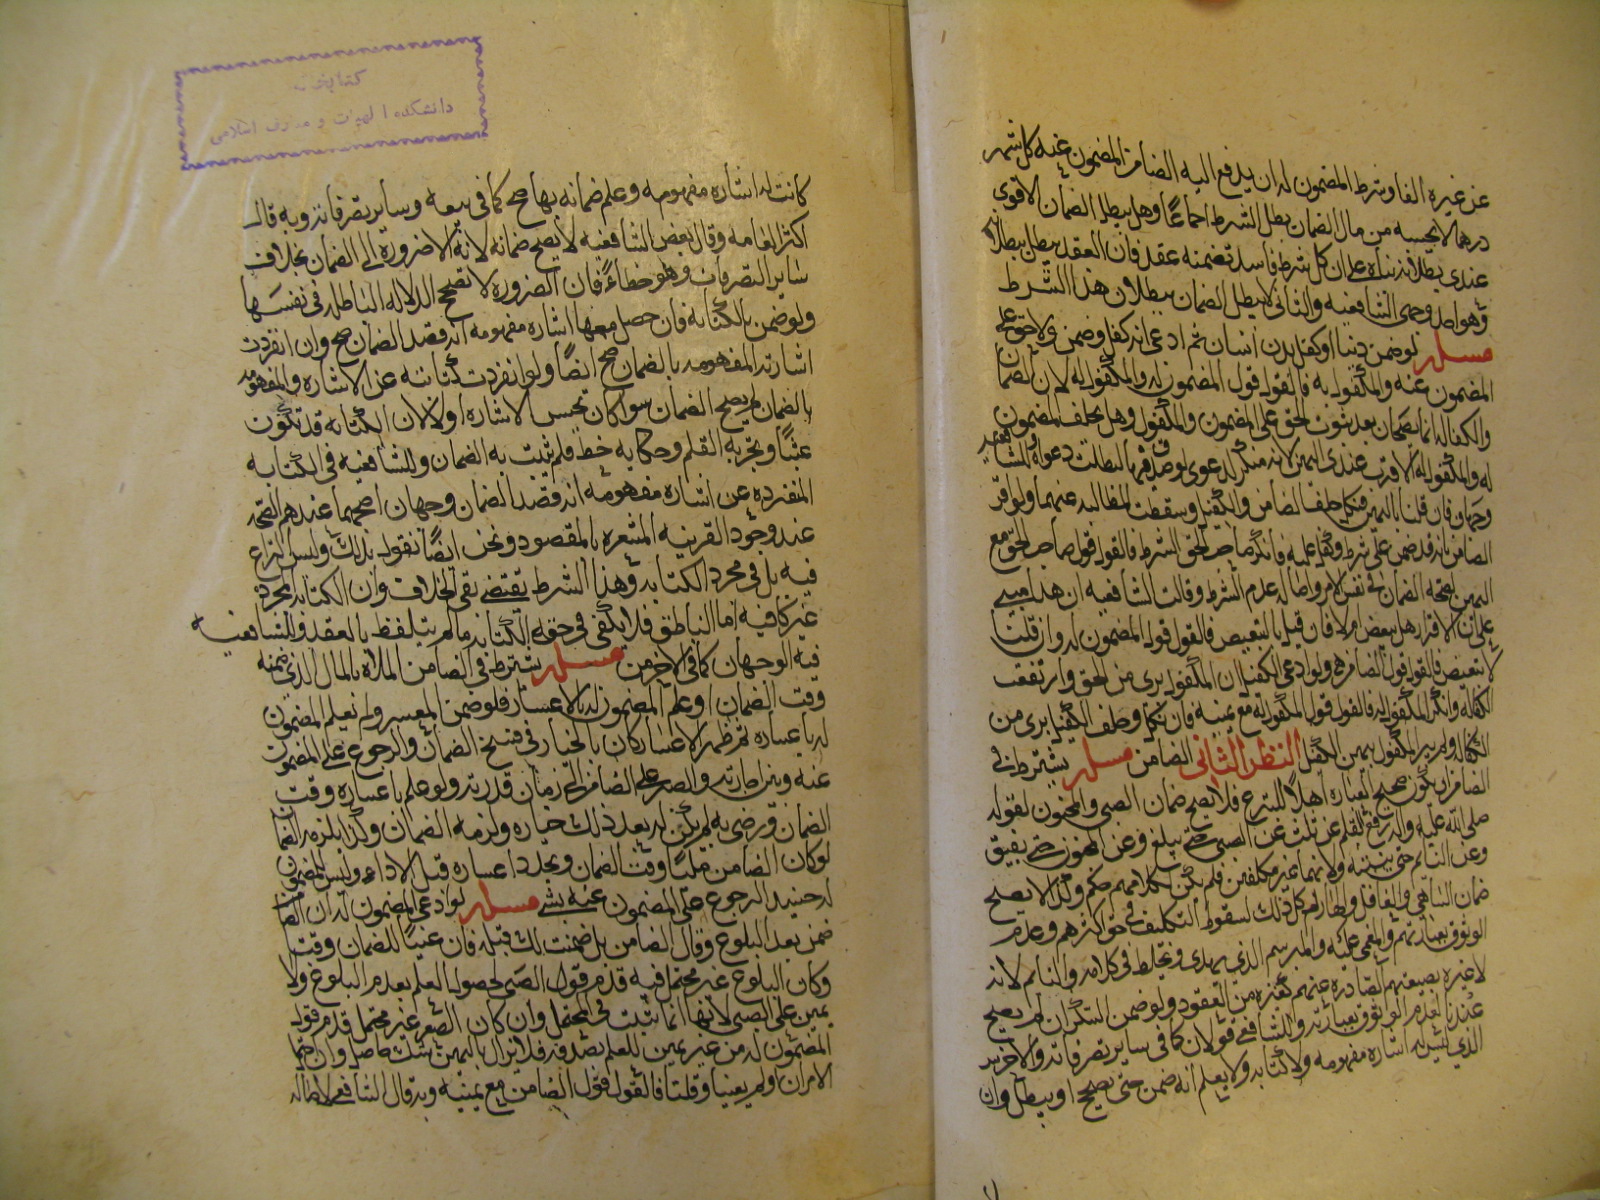 عن غيره الفا وشرط المضمون له ان يدفع اليه الضامن المضمون عنه كل شهر
درهما لا يحسبه من مال الضمان بطل الشرط اجماعا وهل يبطل الضمان الاقوى
عندي بطلانه بناء على ان كل شرط فاسد تضمنه عقد فان العقد يبطل ببطلانه
وهو احد وجهي الشافعيه والثاني لا يبطل الضمان ببطلان هذا الشرط
مسله لو ضمن دينا او كفل بدن انسان ثم ادعى انه كفل وضمن ولا حق على
المضمون عنه والمكفول به فالقول قول المضمون له والمكفول له لان الضمان
والكفاله انما يصحان بعد ثبوت الحق على المضمون والمكفول وهل يحلف المضمون
له والمكفول له الاقرب عندي اليمين لانه منكر لدعوى لو صدق فيها لبطلت دعواه وللشافعيه
وجهان فان قلنا باليمين فنكلا حلف الضامن والكفيل وسقطت المطالبه عنهما ولو اقر
الضامن بانه قد ضمن على شرط وكفل عليه فانكر صاحب الحق الشرط فالقول قول صاحب الحق مع
اليمين لصحه الضمان في نفس الامر واصاله عدم الشرط وقالت الشافعيه ان هذا مبني
على ان الاقرار هل يبعض ام لا فان قيل بالتبعيض فالقول قول المضمون له وان قلنا
لا يتبعض فالقول قول الضامن ولو ادعى الكفيل ان المكفول برى من الحق وارتفعت
الكفاله وانكر المكفول له فالقول قول المكفول له مع يمينه فان نكل وحلف الكفيل برى من
الكفاله ولم يبر المكفول بيمين الكفيل النظر الثاني الضامن مسله يشترط في
الضامن ان يكون صحيح العباره اهلا للتبرع فلا يصح ضمان الصبي والمجنون لقوله
صلى الله عليه واله رفع القلم عن ثلث عن الصبي حتى يبلغ وعن المجنون حتى يفيق
وعن النائم حتى ينتبه ولانهما غير مكلفين فلم يكن لكلامهم حكم وكذا لا يصح
ضمان الساهي والغافل والهازل كل ذلك لسقوط التكليف في حق اكثرهم وعدم
الوثوق بعبارتهم والمغمى عليه والمبرسم الذي يهذي ويخلط في كلامه والنائم لانه
لا عبره بصيغتهم الصادره عنهم كغيره من العقود ولو ضمن السكران لم يصح
عندنا لعدم الوثوق بعبارته وللشافعي قولان كما في ساير تصرفاته والاخرس
الذي ليس له اشاره مفهومه ولا كتابه ولا يعلم انه ضمن حتى يصحح او يبطل وان
كانت له اشاره مفهومه وعلم ضمانه بها صح كما في بيعه وساير تصرفاته وبه قال
اكثر العامه وقال بعض الشافعيه لا يصح ضمانه لانه لا ضروره الى الضمان بخلاف
ساير التصرفات وهو خطاء فان الضروره لا تصحح الدلاله الباطله في نفسها
ولو ضمن بالكتابه فان حصل معها اشاره مفهومه انه قصد الضمان صح وان انفردت
اشارته المفهومه بالضمان صح ايضا ولو انفردت كتابته عن الاشاره المفهومه
بالضمان لم يصح الضمان سوا كان يحسن الاشاره او لا لان الكتابه قد تكون
عبثا وتجربه القلم وحكايه خط فلم يثبت به الضمان وللشافعيه في الكتابه
المنفرده عن اشاره مفهومه انه قصد الضمان وجهان اصحهما عندهم الصحه
عند وجود القرينه المشعره بالمقصود ونحن ايضا نقول بذلك وليس النزاع
فيه بل في مجرد الكتابه وهذا الشرط يقتضي نفي الخلاف وان الكتابه بمجرده
غير كافيه اما الناطق فلا يكفي في حقه الكتابه ما لم يتلفظ بالعقد وللشافعيه
فيه الوجهان كما في الاخرس مسله يشترط في الضامن الملاه بالمال الذي ضمنه
وقت الضمان او علم المضمون له بالاعسار فلو ضمن المعسر ولم يعلم المضمون
له باعساره ثم ظهر الاعسار كان بالخيار في فسخ الضمان والرجوع على المضمون
عنه وبين اجازته والصبر على الضامن الى زمان قدرته ولو علم باعساره وقت
الضمان ورضي به لم يكن له بعد ذلك خياره ولزمه الضمان وكذا يلزمه الضمان
لو كان الضامن مليا وقت الضمان وتجدد اعساره قبل الاداء وليس للمضمون
له حينئذ الرجوع على المضمون عنه بشي مسله لو ادعى المضمون له ان الضامن
ضمن بعد البلوغ وقال الضامن بل ضمنت لك قبله فان عينا للضمان وقتا
وكان البلوغ غير محتمل فيه قدم قول الصبي لحصول العلم بعدم البلوغ ولا
يمين على الصبي لانها انما تثبت في المحتمل وان كان الصغر غير محتمل قدم قول
المضمون له من غير يمين للعلم بصدقه فلا يزال باليمين شك حاصل وان احتمل
الامران ولم يعينا وقتا فالقول قول الضامن مع يمينه وبه قال الشافعي لاصاله